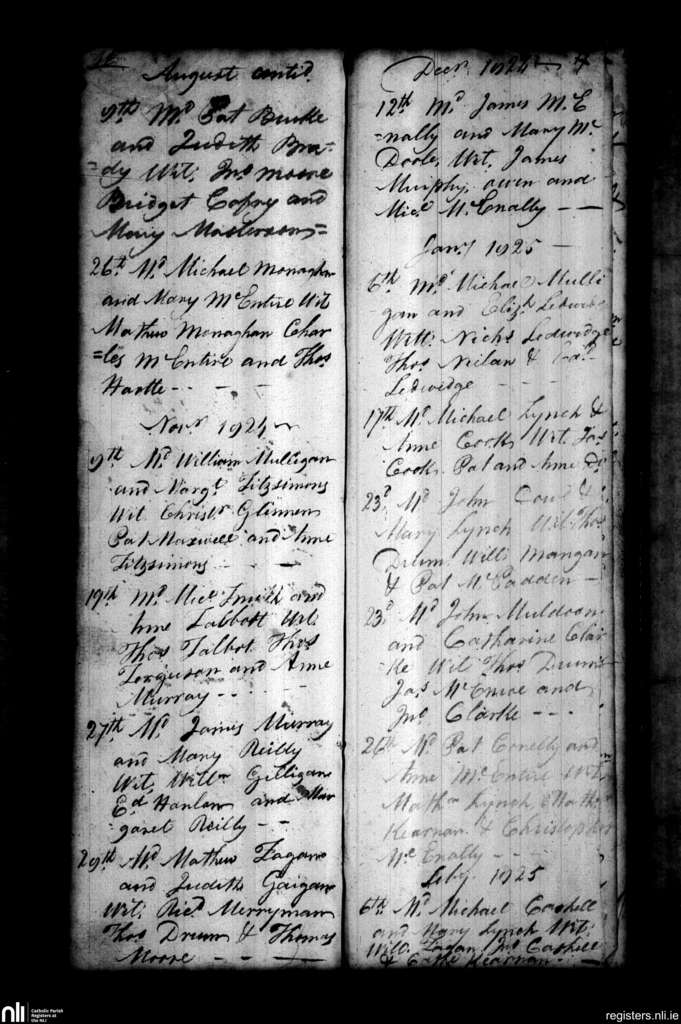 August contd.
9th Md Pat Burke
and Judith Bra-
=dy Wit. Jno Moore
Bridget Cofny and
Mary Masterson=
26th Md Michael Monaghan
and Mary McEntire Wit
Mathew Monaghan Char
=les McEntire and Thos
Hartle - - - -
Novr 1924
9th Md William Mulligan
and Margt Fitzsimons
Wit Christr Glinnen
Pat Maxwell and Anne
Fitzsimons - - -
19th Md Micl Smith and
Anne Talbott Wit.
Thos Talbot Thos
Ferguson and Anne
Murray - - -
27th Md James Murray
and Mary Reilly
Wit, Willm Gilligan
Ed Hanlon and Mar
garet Reilly - -
29th Md Mathew Fagan
and Judith Gaigan
Wit. Ricd Merryman
Thos Drum & Thomas
Moore - - -
Decr 1924
12th Md James McE
=nally and Mary Mc
Doole, Wit. James
Murphy, Owen and
Micl McEnally - -
Jany 1925 -
6th Md Michael Mulli
gan and Elizh Ledwidge
Witt: Nichs Ledwidge
Thos Neilan &
Ledwidge - - - -
17th Md Michael Lynch &
Anne Cook Wit. Jas
Cook Pat and Anne
23d Md John &
Mary Lynch Wit. Thos
Drum Willm Mangan
& Pat McCadden -
23d Md John Muldoon
and Catharine Clar
ke Wit Thos Drum
Jas McEntire and
Jno Clarke - - -
26th Md Pat Conelly and
Anne McEntire Wit
Mathw Lynch Mathw
Kearnan & Christopher
McEnally - -
Feby 1925
6th Md Michael Cashell
and Mary Lynch Wit.
Willm Fagan Jno Cashell
& Kearnan -
nli
Catholic Parish
Registers at
the NLI
registers.nli.ie